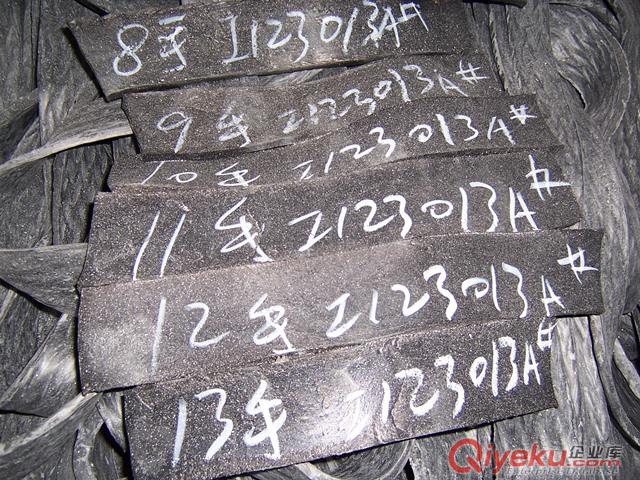 8手 I123013A#
9手 I123013A#
10手 I123013A#
11手 I123013A#
12手 I123013A#
13手 I123013A#
Qiyeku.com 企业库